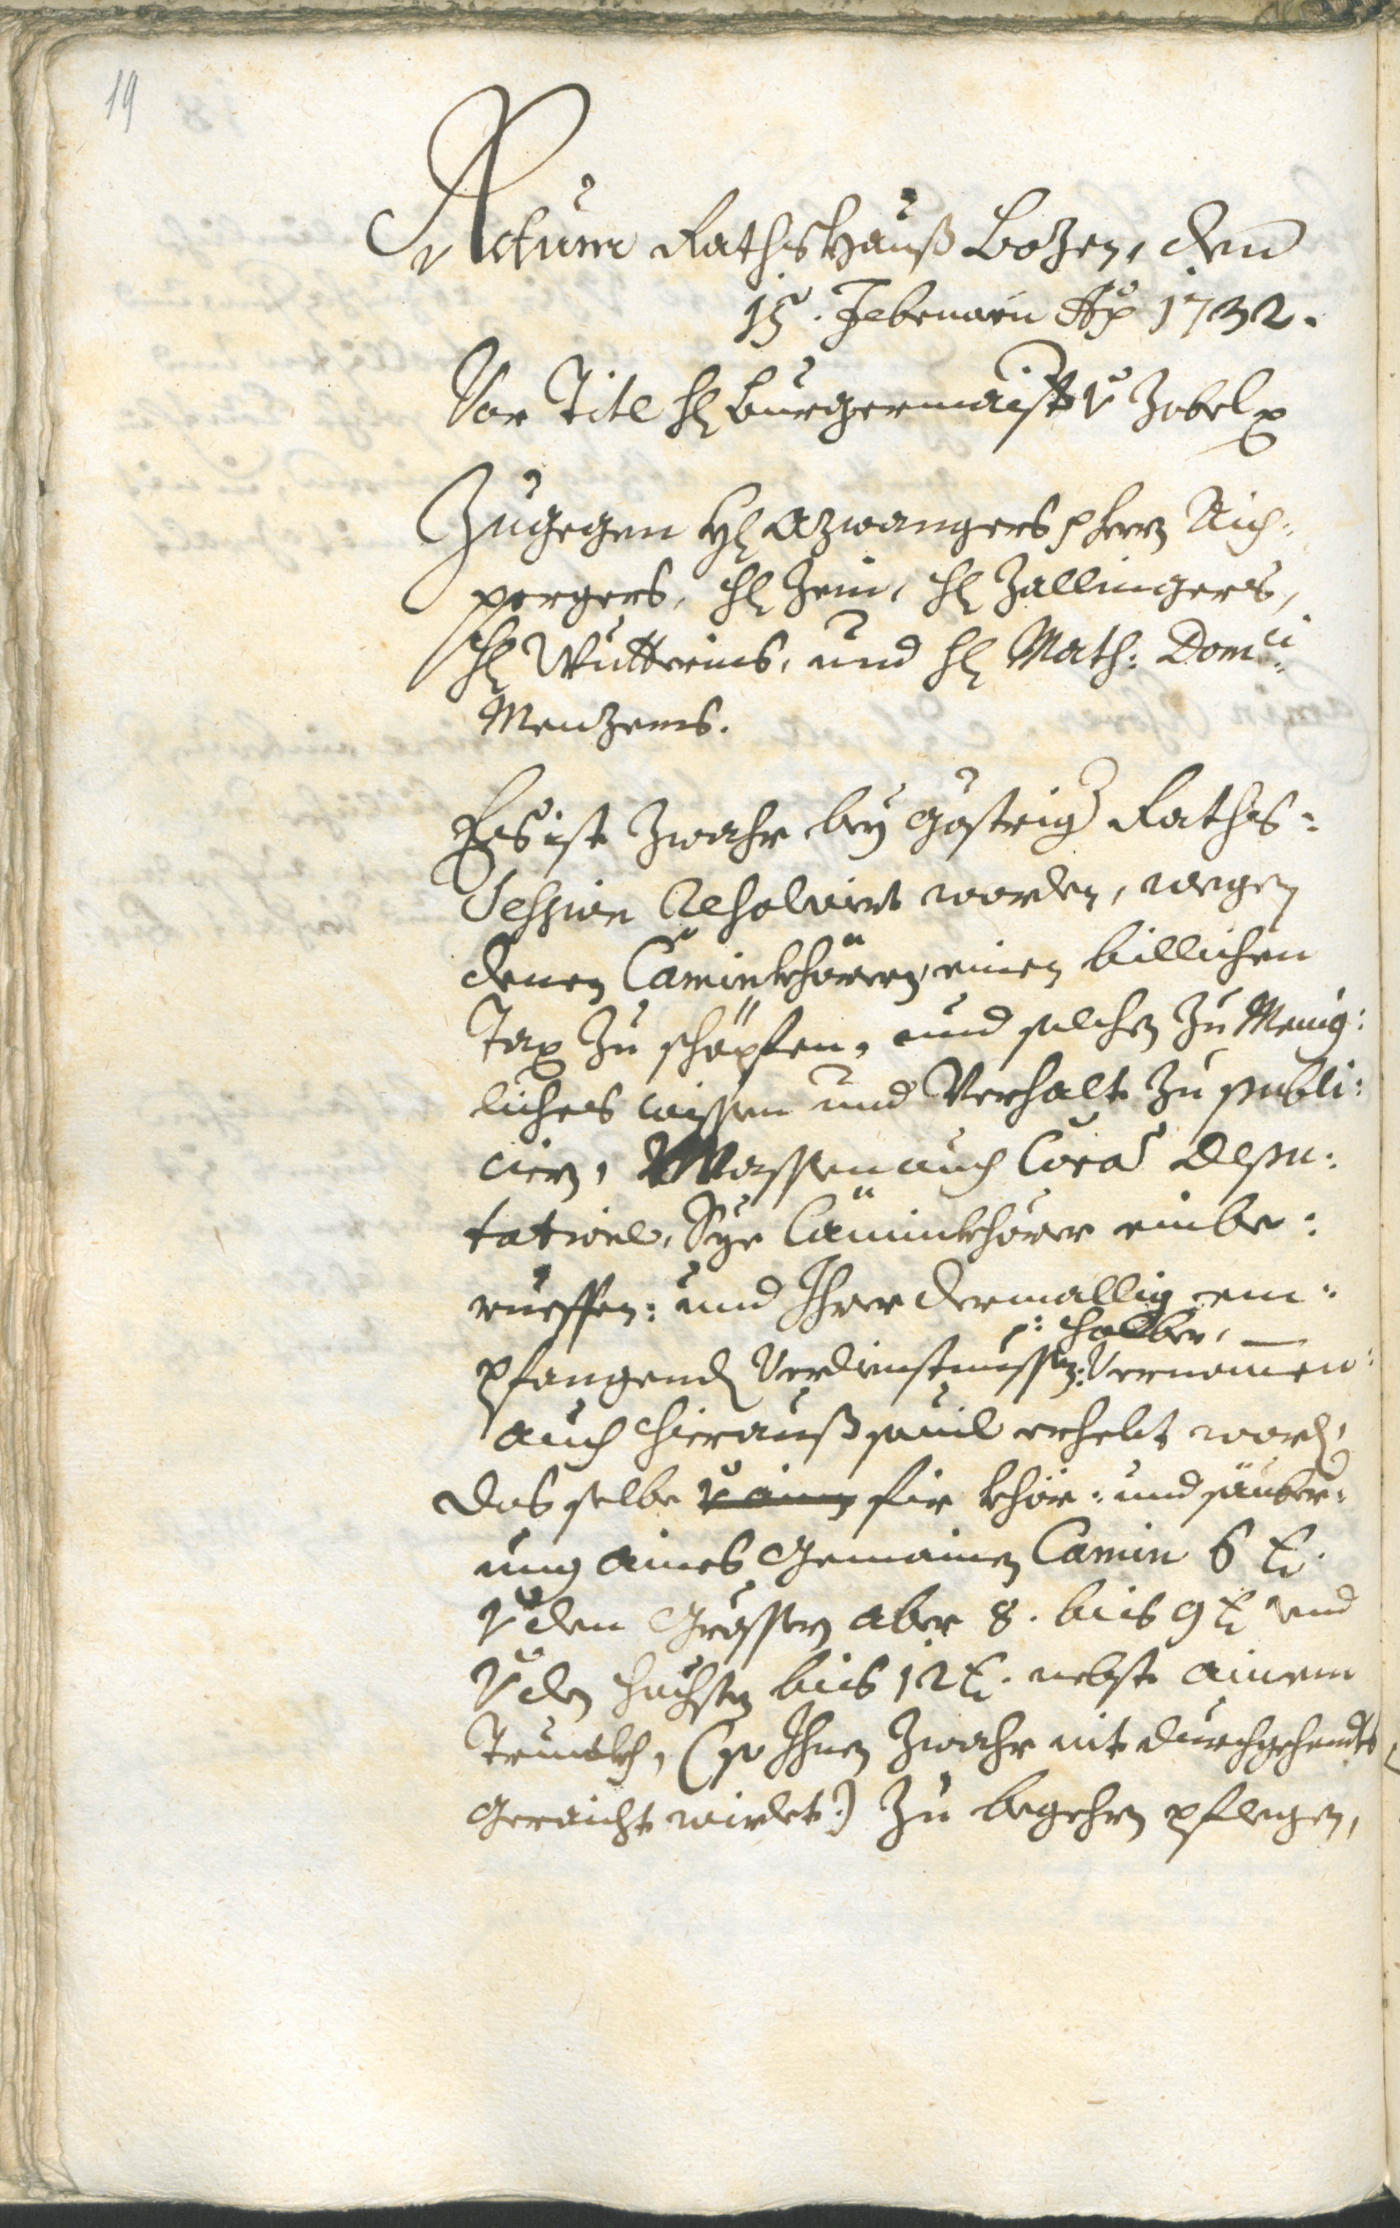 19
Actum Rathshauß Bozen, den
15. Februarii Ao 1732.
Vor Titl H Burgermaister v Zobel p
Zugegen H Azwangers, Herrn Aich:
pergers, H Zein, H Zallingers,
H Wutterins, und H Math: Domci:
Menzens.
Es ist zwahr bey gestrig Raths=
Session Resolviert worden, wegen
denen Caminkhörern einen billichen
Tax zu schöpfen, und solchen zu Menig:
liches wissen und Verhalt zu publi:
ciern, Massen auch Cora Depu:
tatione, Sye Cäminkhörer einbe:
rueffen: und Ihrer dermallig em:
: halber,
pfangend Verdienstnussen: Vernomen:
auch hierauß souil erhebt word,
das selbe für khör: und säuber:
ung aines Gemainen Camin 6 x.
V den Grossen aber 8. biß 9 x und
V den hochsten biß 12 x. nebst ainem
Trunkh, (so Ihnen zwahr nit durchgehendts
Geraicht wirdet:) zu begehrn pflegen,